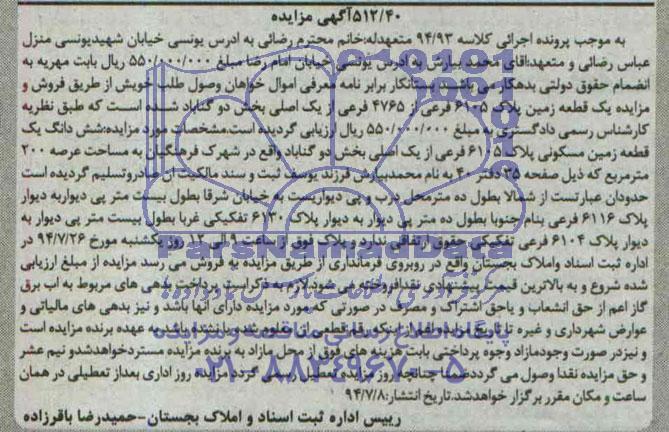 ۵۱۲/۴۰آگهی مزایده
به موجب پرونده اجرائی کلاسه ۹۴/۹۳ متعهدله:خانم محترم رضائی به ادرس یونسی خیابان شهیدیونسی منزل
عباس رضائی و متعهد:اقای محمد بیارش به ادرس یونسی خیابان امام رضا مبلغ ۵۵۰/۰۰۰/۰۰۰ ریال بابت مهریه به
انضمام حقوق دولتی بدهکار می باشد بستانکار برابر نامه معرفی اموال خواهان وصول طلب خویش از طریق فروش و
مزایده یک قطعه زمین پلاک ۶۱۰۵ فرعی از ۴۷۶۵ فرعی از یک اصلی بخش دو گناباد شده است که طبق نظریه
کارشناس رسمی دادگستری به مبلغ ۵۵۰/۰۰۰/۰۰۰ ریال ارزیابی گردیده است.مشخصات مورد مزایده:شش دانگ یک
قطعه زمین مسکونی پلاک ۶۱۰۵ فرعی از یک اصلی بخش دو گناباد واقع در شهرک فرهنگیان به مساحت عرصه ۲۰۰
مترمربع که ذیل صفحه ۳۵ دفتر ۴۰ به نام محمدبیارش فرزند یوسف ثبت و سند مالکیت ان صادروتسلیم گردیده است
حدودان عبارتست از شمالا بطول ده مترمحل درب و پی دیواریست به خیابان شرقا بطول بیست متر پی دیواربه دیوار
پلاک ۶۱۱۶ فرعی بنام جنوبا بطول ده متر پی دیوار به دیوار پلاک ۶۱۳۰ تفکیکی غربا بطول بیست متر پی دیوار به
دیوار پلاک ۶۱۰۴ فرعی تفکیکی حقوق ارتفاقی ندارد و پلاک فوق از ساعت ۹ الی ۱۲ روز یکشنبه مورخ ۹۴/۷/۲۶ در
اداره ثبت اسناد واملاک بجستان واقع در روبروی فرمانداری از طریق مزایده به فروش می رسد مزایده از مبلغ ارزیابی
شده شروع و به بالاترین قیمت پیشنهادی نقدافروخته می شود.لازم به ذکراست پرداخت بدهی های مربوط به اب برق
گاز اعم از حق انشعاب و یاحق اشتراک و مصرف در صورتی که مورد مزایده دارای آنها باشد و نیز بدهی های مالیاتی و
عوارض شهرداری و غیره تا تاریخ مزایده اعم از اینکه رقم قطعی ان معلوم شده یا نشده باشد به عهده برنده مزایده است
و نیزدر صورت وجودمازاد وجوه پرداختی بابت هزینه های فوق از محل مازاد به برنده مزایده مستردخواهدشدو نیم عشر
و حق مزایده نقدا وصول می گرددضمنا چنانچه روز مزایده تعطیل رسمی گردد مزایده روز اداری بعداز تعطیلی در همان
ساعت و مکان مقرر برگزار خواهدشد.تاریخ انتشار:۹۴/۷/۸
رییس اداره ثبت اسناد و املاک بجستان-حمیدرضا باقرزاده
ParsNamadData
پایگاه اطلاع رسانی مناقصه و مزایده
۰۲۱-۸۸۳۴۹۶۷۰-۵